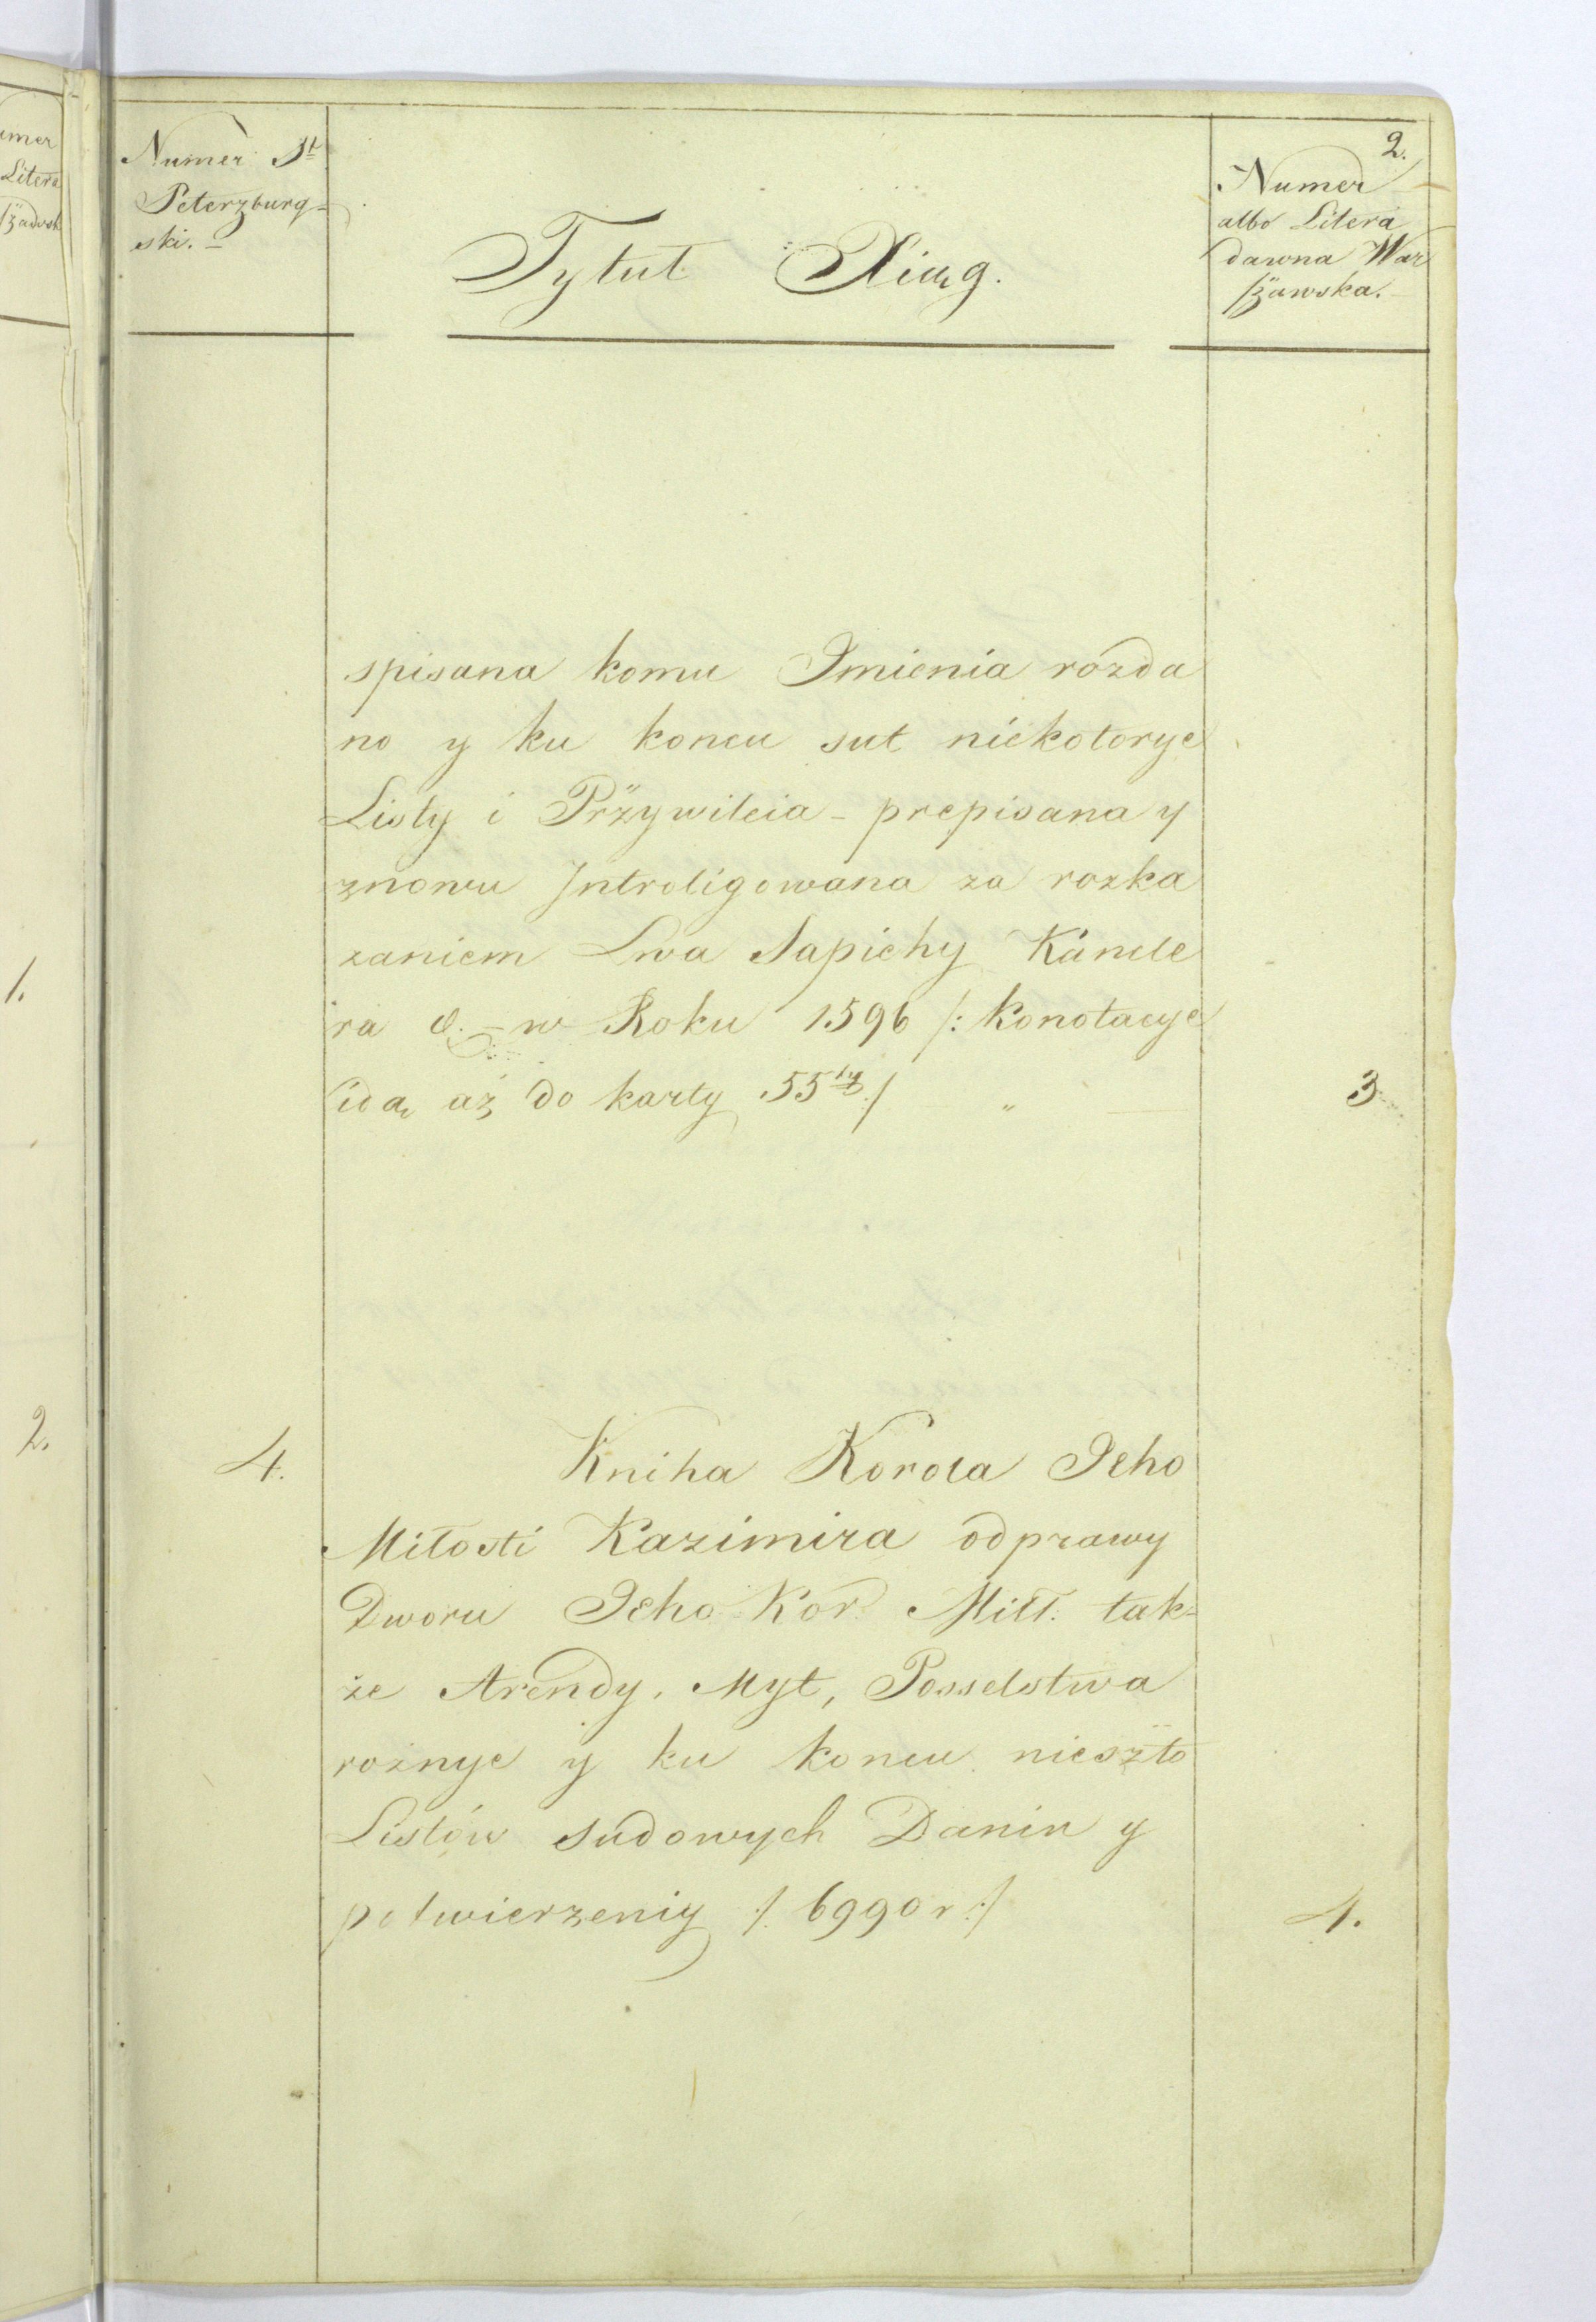 2.
Numer St
Peterzburg-
ski.
Tytuł Xiąg.
Numer
albo Litera
dawna War
szawska.
spisana komu Imienia rozda
no y ku koncu sut niekotorye
Listy i Przywileia - prepisana y
znowu Introligowana za rozka
zaniem Lwa Sapiehy Kancle
ra w Roku 1596 /: Konotacye
idą aż do karty 55 ty /
3
4.
Kniha Korola Jeho
Miłosti Kazimira odprawy
Dworu Jeho Kor Miłł. tak-
że Arendy, Myt, Posselstwa
rożnye y ku koncu nieszto
Listów sudowych Danin y
potwierzeniy /. 6990 r :/
4.
umer
Litera
szawsk
1.
2.